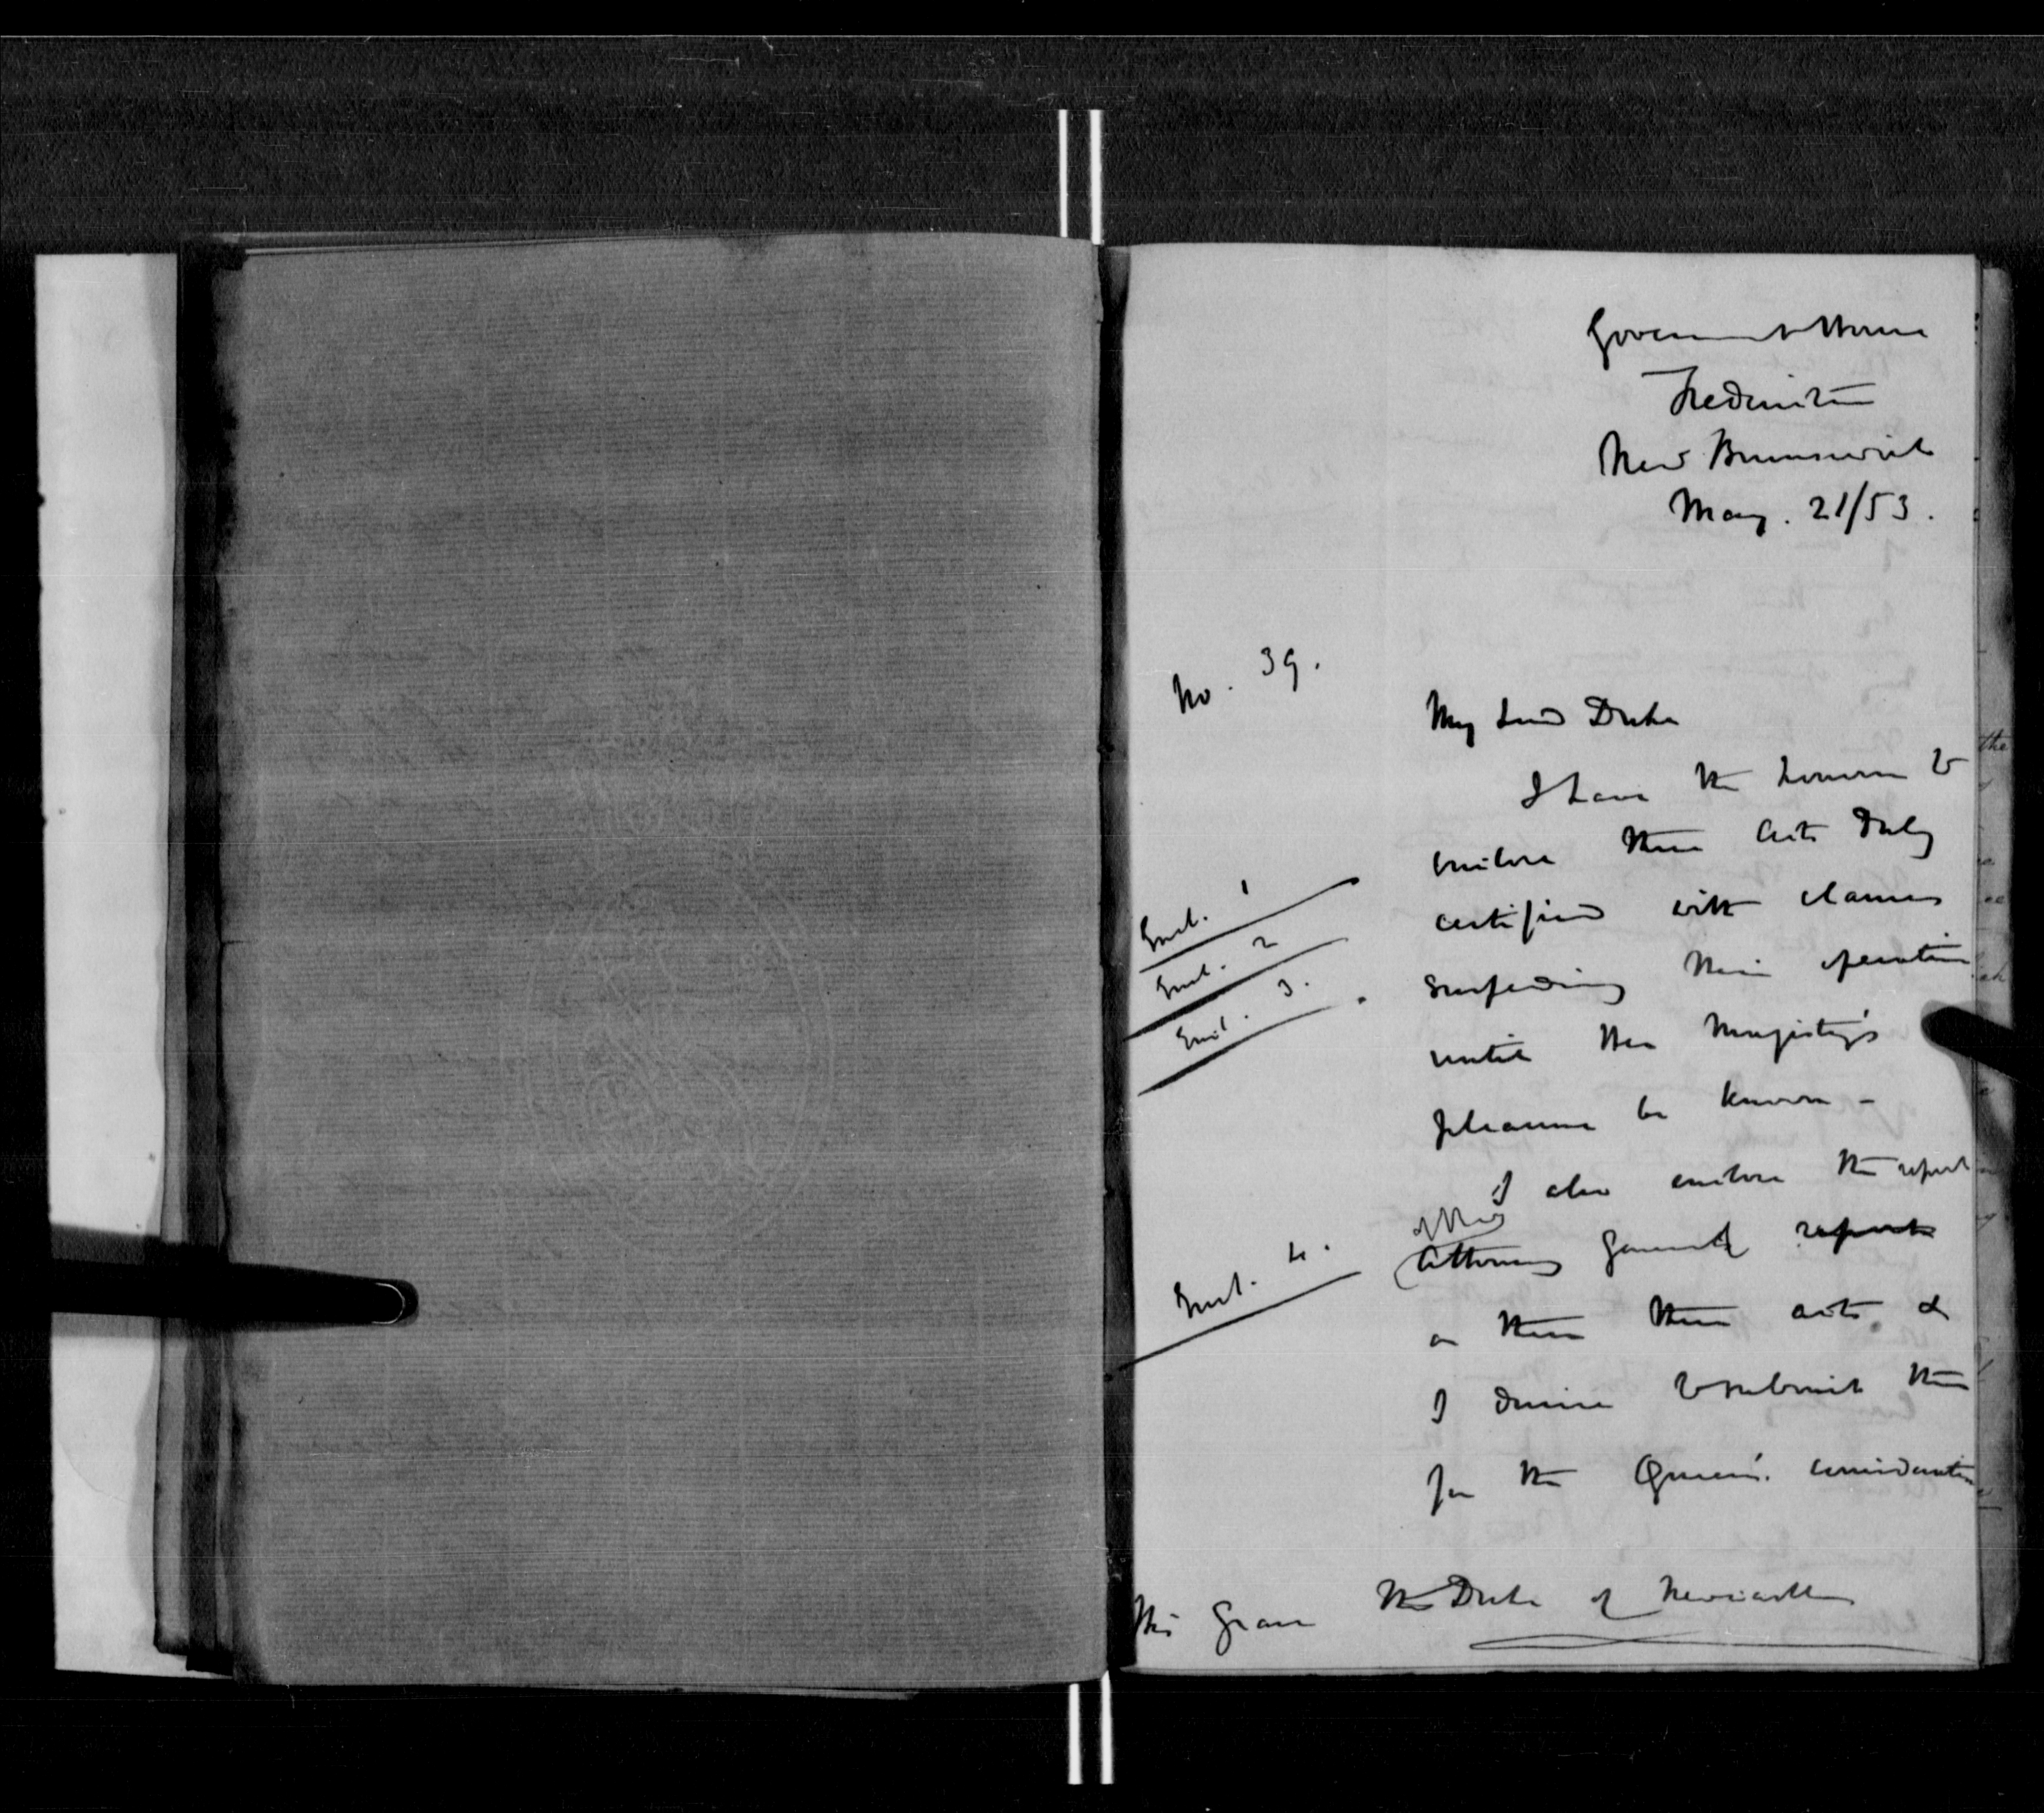 Government House
Fredericton
New Brunswick
May. 21/53.
No. 39.
My Lord Duke
I have the honour to
enclose three Acts duly
certified with clauses
Encl. 1
Encl. 2
Encl. 3.
suspending their operation
until Her Majesty's
pleasure be known -
I also enclose the report
of the
Attorney General reports
Encl. 4.
on these three acts &
I desire to submit them
for the Queen's consideration
His Grace The Duke of Newcastle